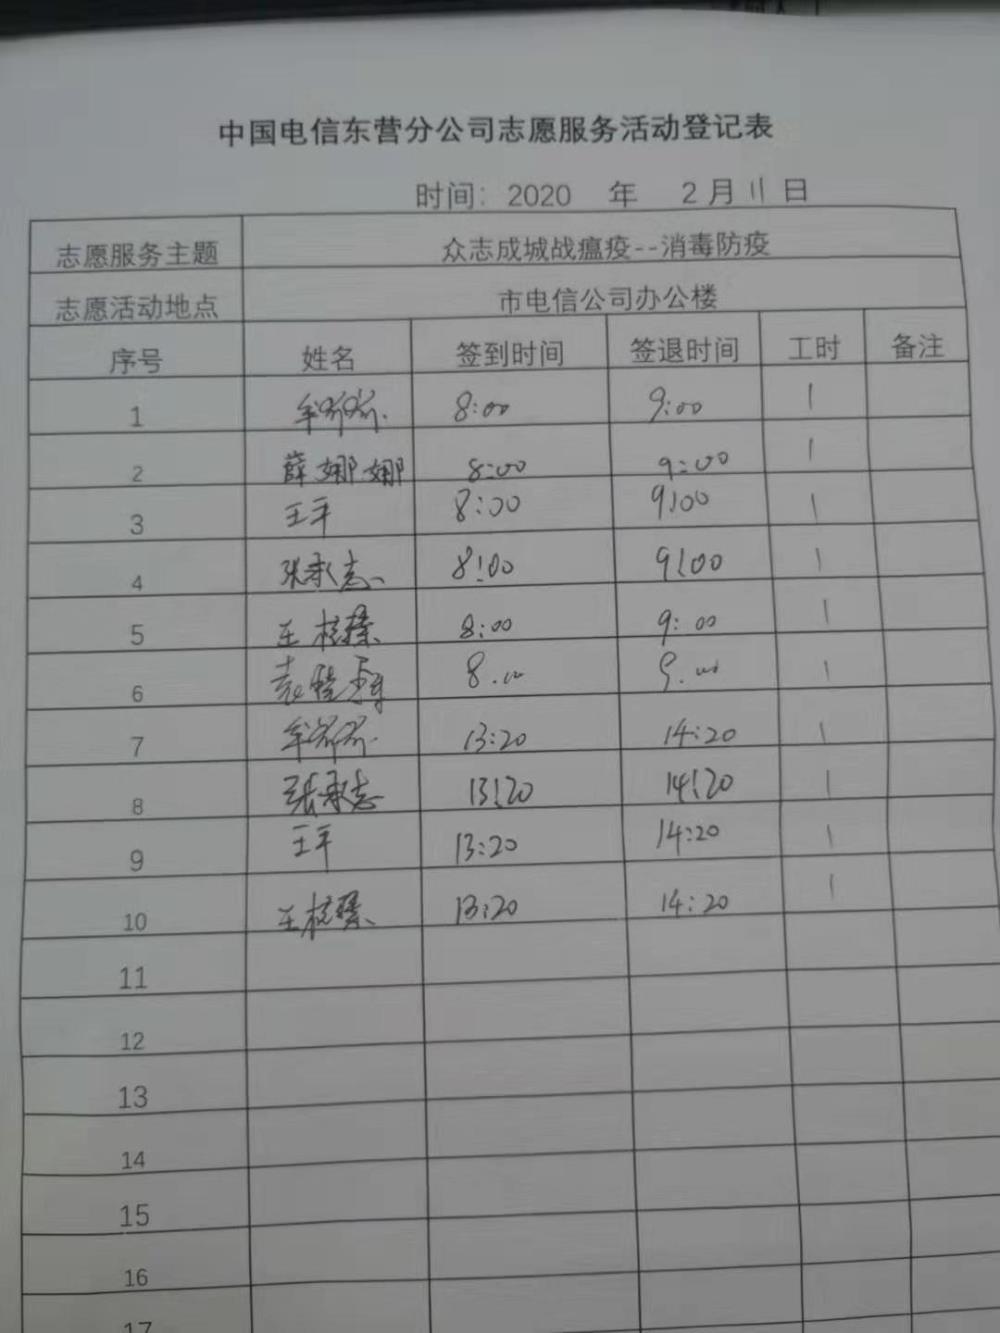 中国电信东营分公司志愿服务活动登记表
时间：2020 年 2月11日
志愿服务主题 众志成城战瘟疫--消毒防疫
志愿活动地点 市电信公司办公楼
序号 姓名 签到时间 签退时间 工时 备注
1 8:00 9:00 1
2 薛娜娜 8:00 9:00 1
3 王平 8:00 9:00 1
4 张承志 8:00 9:00 1
5 王 8:00 9:00 1
6 袁 8:00 9:00 1
7 13:20 14:20 1
8 张承志 13:20 14:20 1
9 王平 13:20 14:20 1
10 王 13:20 14:20 1
11
12
13
14
15
16
17